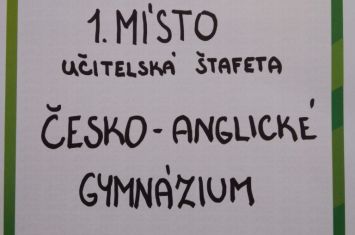 1. MÍSTO
UČITELSKÁ ŠTAFETA
ČESKO - ANGLICKÉ
GYMNÁZIUM